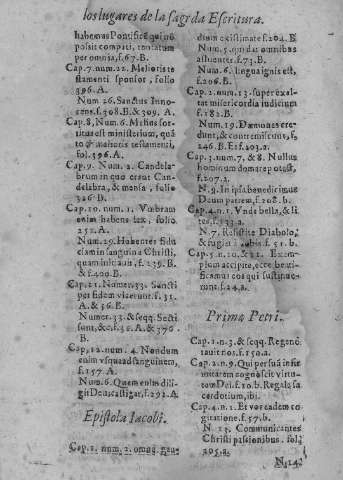 los lugares de la sagrda Escritura.
habemus Pontificē qui nō
possit compati, tentatum
per omnia, f.67. B.
Cap.7. num. 22. Melioris te
stamenti sponsor, folio
396. A.
Num 26. Sanctus Inno-
cens. f. 308. B. & 309. A.
Cap. 8, Num. 6. Melius sor-
titus est ministerium, quā
to & melioris testamenti,
fol. 396. A.
Cap. 9. Num. 2. Candela-
brum in quo erant Can-
delabra, & mensa, folio
326. D.
Cap. 10. num. 1. Vmbram
enim habens lex, folio
252. A.
Num. 29. Habentes fidu
ciam in sanguine Christi,
quam initiauit, f. 239. B.
& f.400. B.
Cap. 11. Numer. 33. Sancti
per fidem vicerunt. f. 35.
A. & 56. B.
Numer. 33. & seqq. Secti
sunt, &c. f. 36. A. & 376.
B.
Cap, 12. num. 4. Nondum
enim vsque ad sanguinem,
f. 157. A.
Num. 6. Quem enim dili-
git Deus, castigat, f. 292. A.
Epistola Iacobi.
Cap. 1. num. 2. omne gau-
dium existimate f. 204. B
Num. 5. qui dat omnibus
affluenter f. 73. B.
Num. 6. lingua ignis est,
f. 206. B.
Cap. 2. num. 13. super exal-
tat misericordia iudicium
f. 182. B.
Num. 19. Dæmones cre-
dunt, & contremiscunt, f.
246. B. Et f. 203. a.
Cap. 3. num. 7, & 8. Nullus
hominum domare potest,
f. 207. a.
N. 9. In ipsa benedicimus
Deum patrem, f. 208. b.
Cap. 4. n. 1. Vnde bella, & li
tes, f. 133. a.
N. 7. Resistite Diabolo,
& fugiet à vobis f. 51. b.
Cap. 5. n. 10. & 11. Exem-
plum accipite, ecce beati-
ficamus eos qui sustinue-
runt f. 24. a.
Prima Petri.
Cap. 1. n. 3. & seqq. Regene
rauit nos. f. 150. a.
Cap. 2. n. 9. Qui
Dei. f. 10. b. Regale sa
cerdotium, ibi.
Cap. 4. n. 1. Et vos eadem co
gitatione. f. 57. b.
N. 13. Communicantes
Christi passionibus. fol.
205. a.
N. 14.